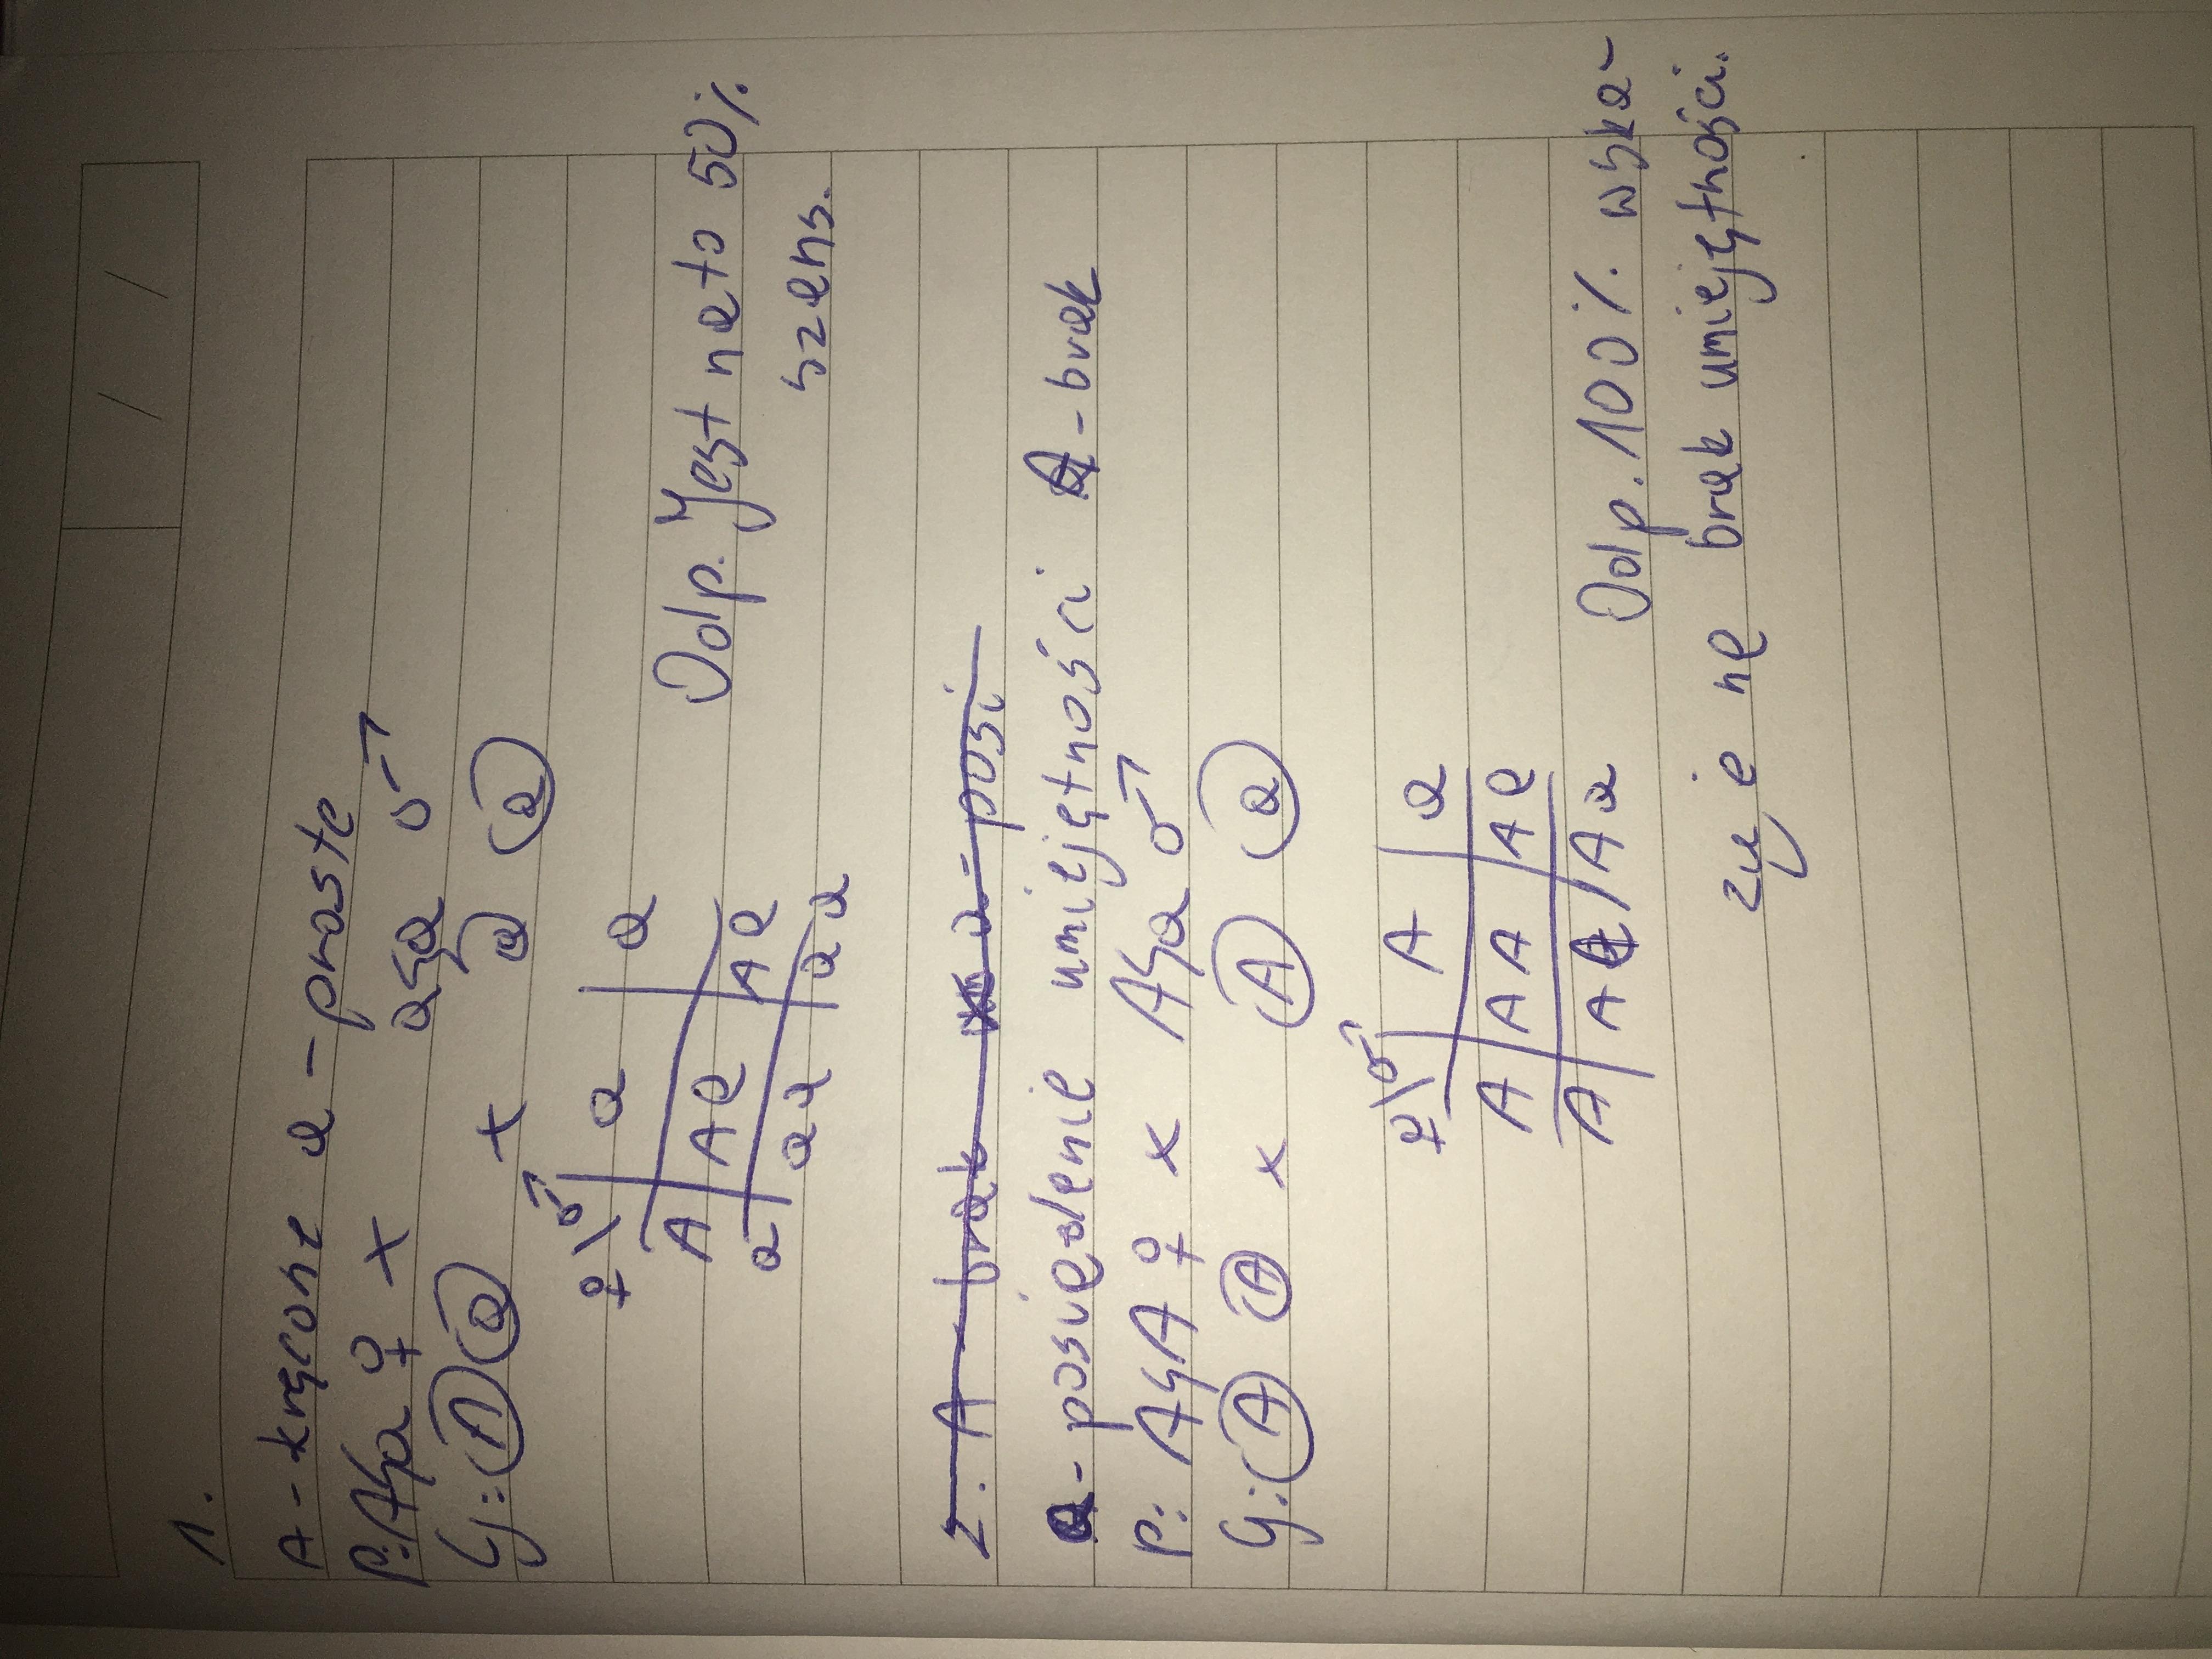 / /
1.
A - kręcone a - proste
P: Aga ♀ x aga ♂
G: A a x a a
♀\♂ a a
A Aa Aa
a aa aa
Odp. Jest na to 50%
szans.
2. A - brak a - posi
a - posiadanie umiejętności A - brak
P: AGA ♀ x AGa ♂
G: A A x A a
♀\♂ A a
A AA Aa
A AA Aa
Odp. 100% wska-
zuje na brak umiejętności.